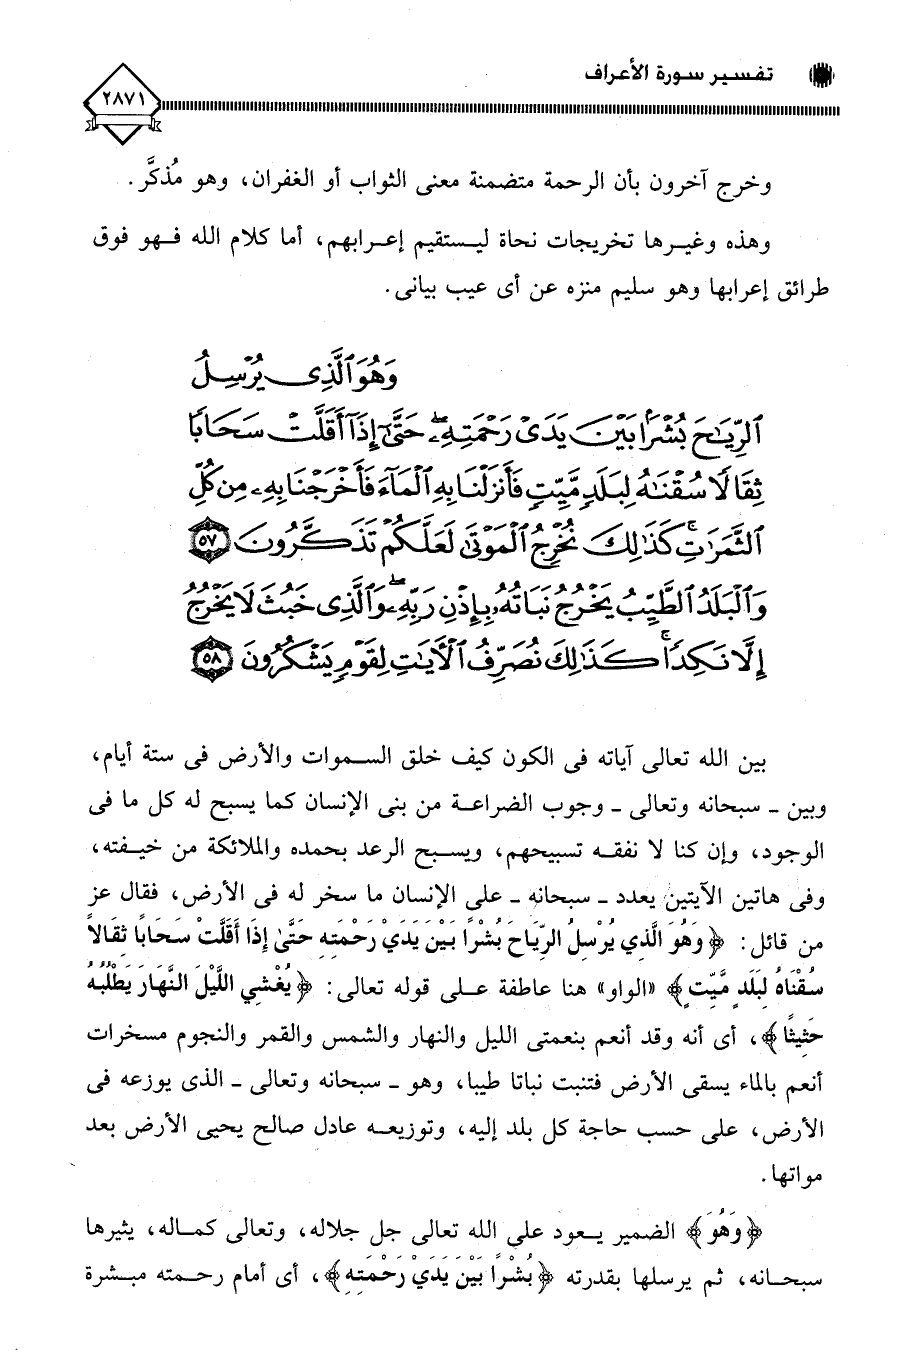 تفسير سورة الأعراف
٢٨٧١
وخرج آخرون بأن الرحمة متضمنة معنى الثواب أو الغفران، وهو مُذكَّر.
وهذه وغيرها تخريجات نحاة ليستقيم إعرابهم، أما كلام الله فهو فوق
طرائق إعرابها وهو سليم منزه عن أى عيب بيانى.
وَهُوَ ٱلَّذِى يُرْسِلُ
ٱلرِّيَـٰحَ بُشْرًۢا بَيْنَ يَدَىْ رَحْمَتِهِۦ ۖ حَتَّىٰٓ إِذَآ أَقَلَّتْ سَحَابًا
ثِقَالًا سُقْنَـٰهُ لِبَلَدٍ مَّيِّتٍ فَأَنزَلْنَا بِهِ ٱلْمَآءَ فَأَخْرَجْنَا بِهِۦ مِن كُلِّ
ٱلثَّمَرَٰتِ ۚ كَذَٰلِكَ نُخْرِجُ ٱلْمَوْتَىٰ لَعَلَّكُمْ تَذَكَّرُونَ ٥٧
وَٱلْبَلَدُ ٱلطَّيِّبُ يَخْرُجُ نَبَاتُهُۥ بِإِذْنِ رَبِّهِۦ ۖ وَٱلَّذِى خَبُثَ لَا يَخْرُجُ
إِلَّا نَكِدًا ۚ كَذَٰلِكَ نُصَرِّفُ ٱلْـَٔايَـٰتِ لِقَوْمٍ يَشْكُرُونَ ٥٨
بين الله تعالى آياته فى الكون كيف خلق السموات والأرض فى ستة أيام،
وبين - سبحانه وتعالى - وجوب الضراعة من بنى الإنسان كما يسبح له كل ما فى
الوجود، وإن كنا لا نفقه تسبيحهم، ويسبح الرعد بحمده والملائكة من خيفته،
وفى هاتين الآيتين يعدد - سبحانه - على الإنسان ما سخر له فى الأرض، فقال عز
من قائل: ﴿وَهُوَ الَّذِي يُرْسِلُ الرِّيَاحَ بُشْرًا بَيْنَ يَدَيْ رَحْمَتِهِ حَتَّىٰ إِذَا أَقَلَّتْ سَحَابًا ثِقَالاً
سُقْنَاهُ لِبَلَدٍ مَّيِّتٍ﴾ «الواو» هنا عاطفة على قوله تعالى: ﴿يُغْشِي اللَّيْلَ النَّهَارَ يَطْلُبُهُ
حَثِيثًا﴾، أى أنه وقد أنعم بنعمتى الليل والنهار والشمس والقمر والنجوم مسخرات
أنعم بالماء يسقى الأرض فتنبت نباتا طيبا، وهو - سبحانه وتعالى - الذى يوزعه فى
الأرض، على حسب حاجة كل بلد إليه، وتوزيعه عادل صالح يحيى الأرض بعد
مواتها.
﴿وَهُوَ﴾ الضمير يعود على الله تعالى جل جلاله، وتعالى كماله، يثيرها
سبحانه، ثم يرسلها بقدرته ﴿بُشْرًا بَيْنَ يَدَيْ رَحْمَتِهِ﴾، أى أمام رحمته مبشرة